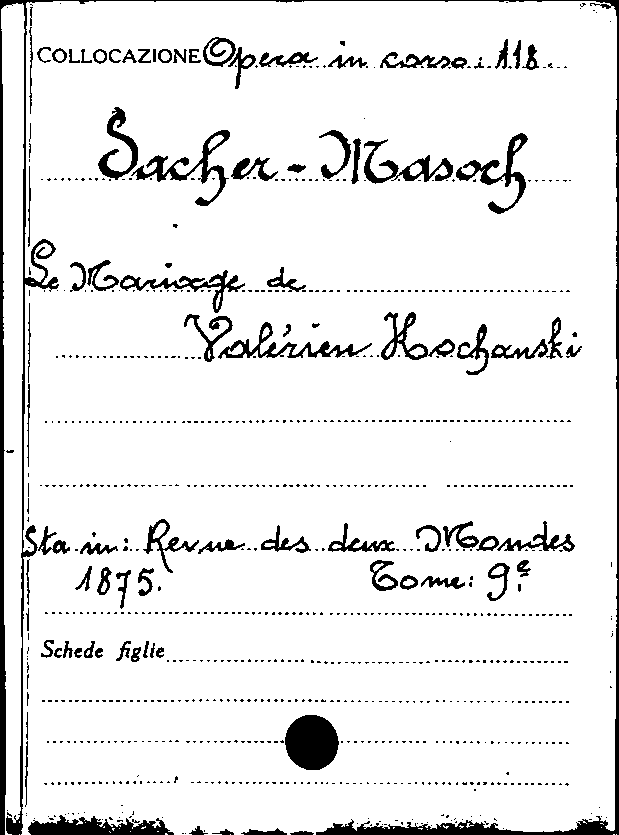 COLLOCAZIONE Opera in corso: 118.
Sacher-Masoch
Le Mariage de
Valérien Kochanski
Sta in: Revue des deux Mondes
1875. Tome: 9e.
Schede figlie